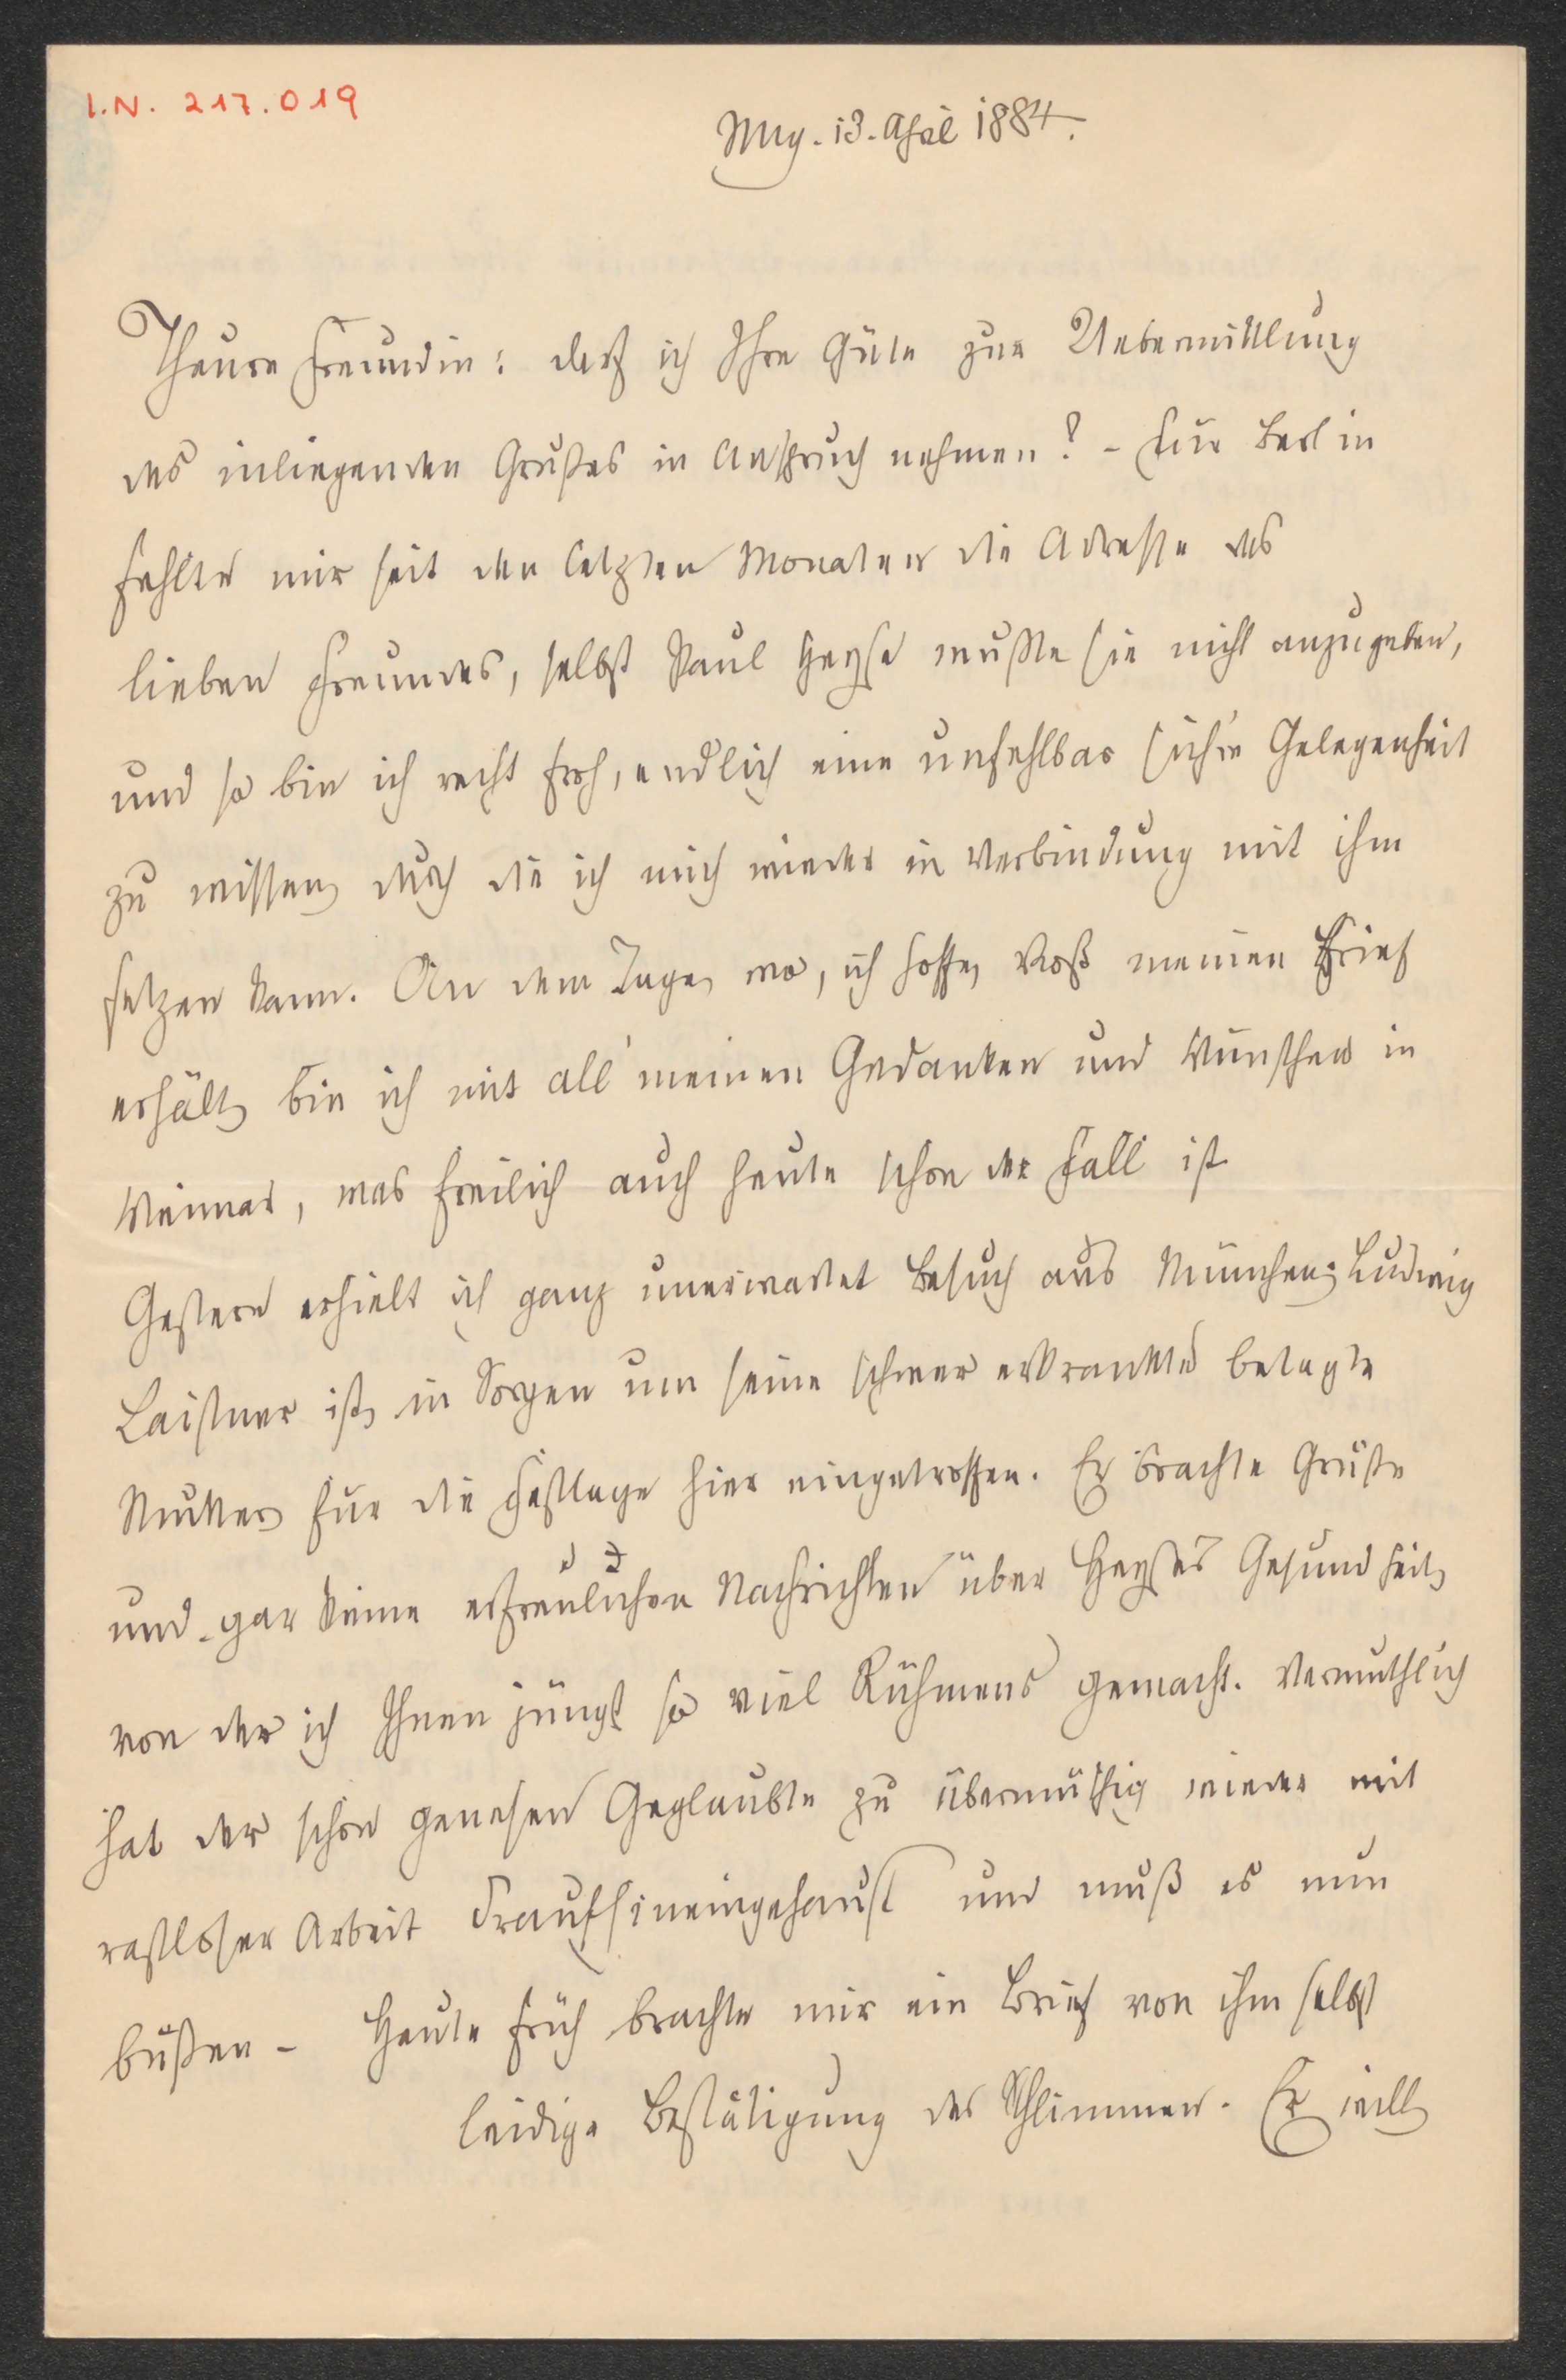 I.N. 217.019
13. April 1884.
Theure Freundin: darf ich Ihre Güte zur Uebermittlung
des inliegenden Grußes in Anspruch nehmen? – Für Berlin
fehlte mir seit den letzten Monaten die Adresse des
lieben Freundes, selbst Paul Heyse wußte sie nicht anzugeben,
und so bin ich recht froh, endlich eine unfehlbar sich're Gelegenheit
zu wissen, durch die ich mich wieder in Verbindung mit ihm
setzen kann. An dem Tage, wo, ich hoffe, Voß meinen Brief
erhält, bin ich mit all' meinen Gedanken und Wünschen in
Weimar, was freilich auch heute schon der Fall ist.
Gestern erhielt ich ganz unerwartet Besuch aus München; Ludwig
Laistner ist, in Sorgen um seine schwer erkrankte betagte
Mutter, für die Festtage hier eingetroffen. Er brachte Grüße
und gar keine erfreulichen Nachrichten über Heyse's Gesundheit,
von der ich Ihnen jüngst so viel Rühmens gemacht. Vermuthlich
hat der schon genesen Geglaubte zu übermüthig wieder mit
rastloser Arbeit drauf hineingehaust und muß es nun
büßen – Heute früh brachte mir ein Brief von ihm selbst
leidige Bestätigung des Schlimmen. Er will,